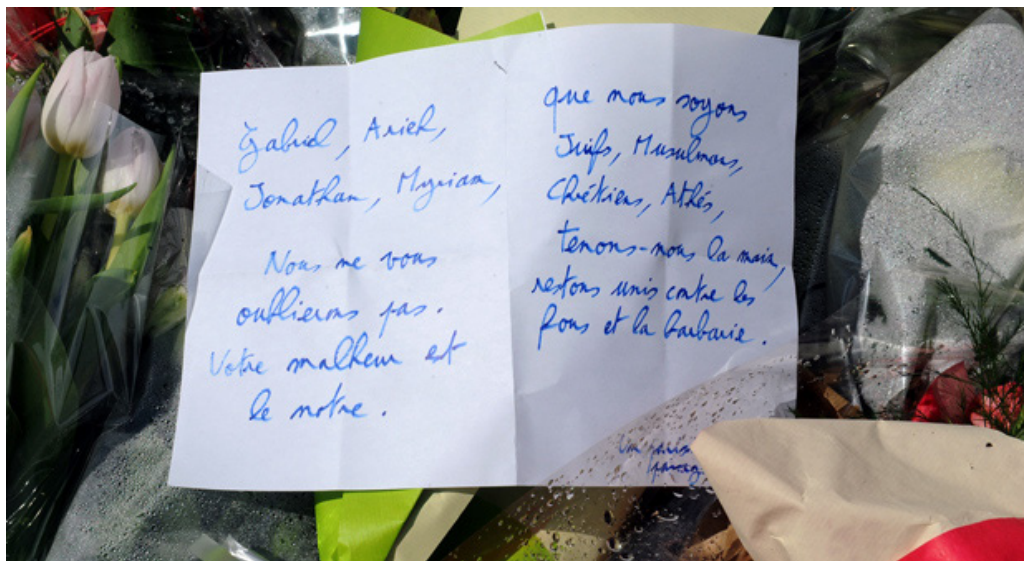 Gabriel, Arieh,
Jonathan, Myriam,
Nous ne vous
oublierons pas.
Votre malheur est
le notre.
que nous soyons
Juifs, Musulmans,
Chrétiens, Athés,
tenons-nous la main,
restons unis contre les
fous et la barbarie.
Un